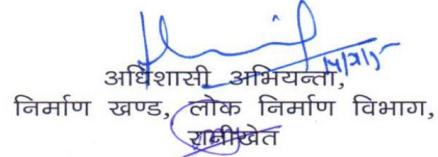 अधिशासी अभियन्ता,
निर्माण खण्ड, लोक निर्माण विभाग,
रानीखेत